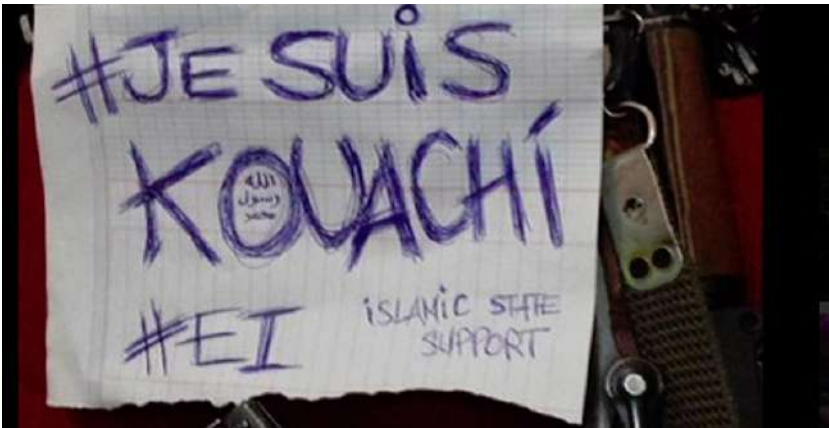 #JE SUiS
KOUACHÍ
الله
رسول
محمد
#EI
iSLAMiC STATE
SUPPORT